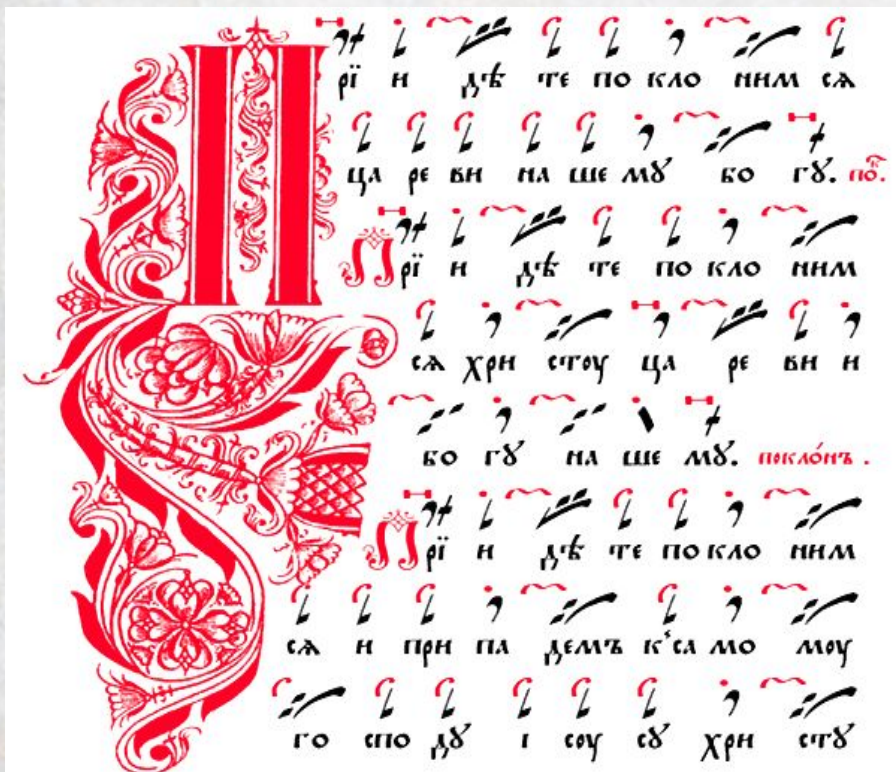 Прїи дѣ те по кло ним сѧ
ца ре ви на ше мꙋ бо гꙋ. поⷦ҇.
Прїи дѣ те по кло ним
сѧ хри стоу ца ре ви и
бо гꙋ на ше мꙋ. покло́нъ .
Прїи дѣ те по кло ним
сѧ и при па демъ к'са мо моу
го спо дꙋ і соу сꙋ хри стꙋ